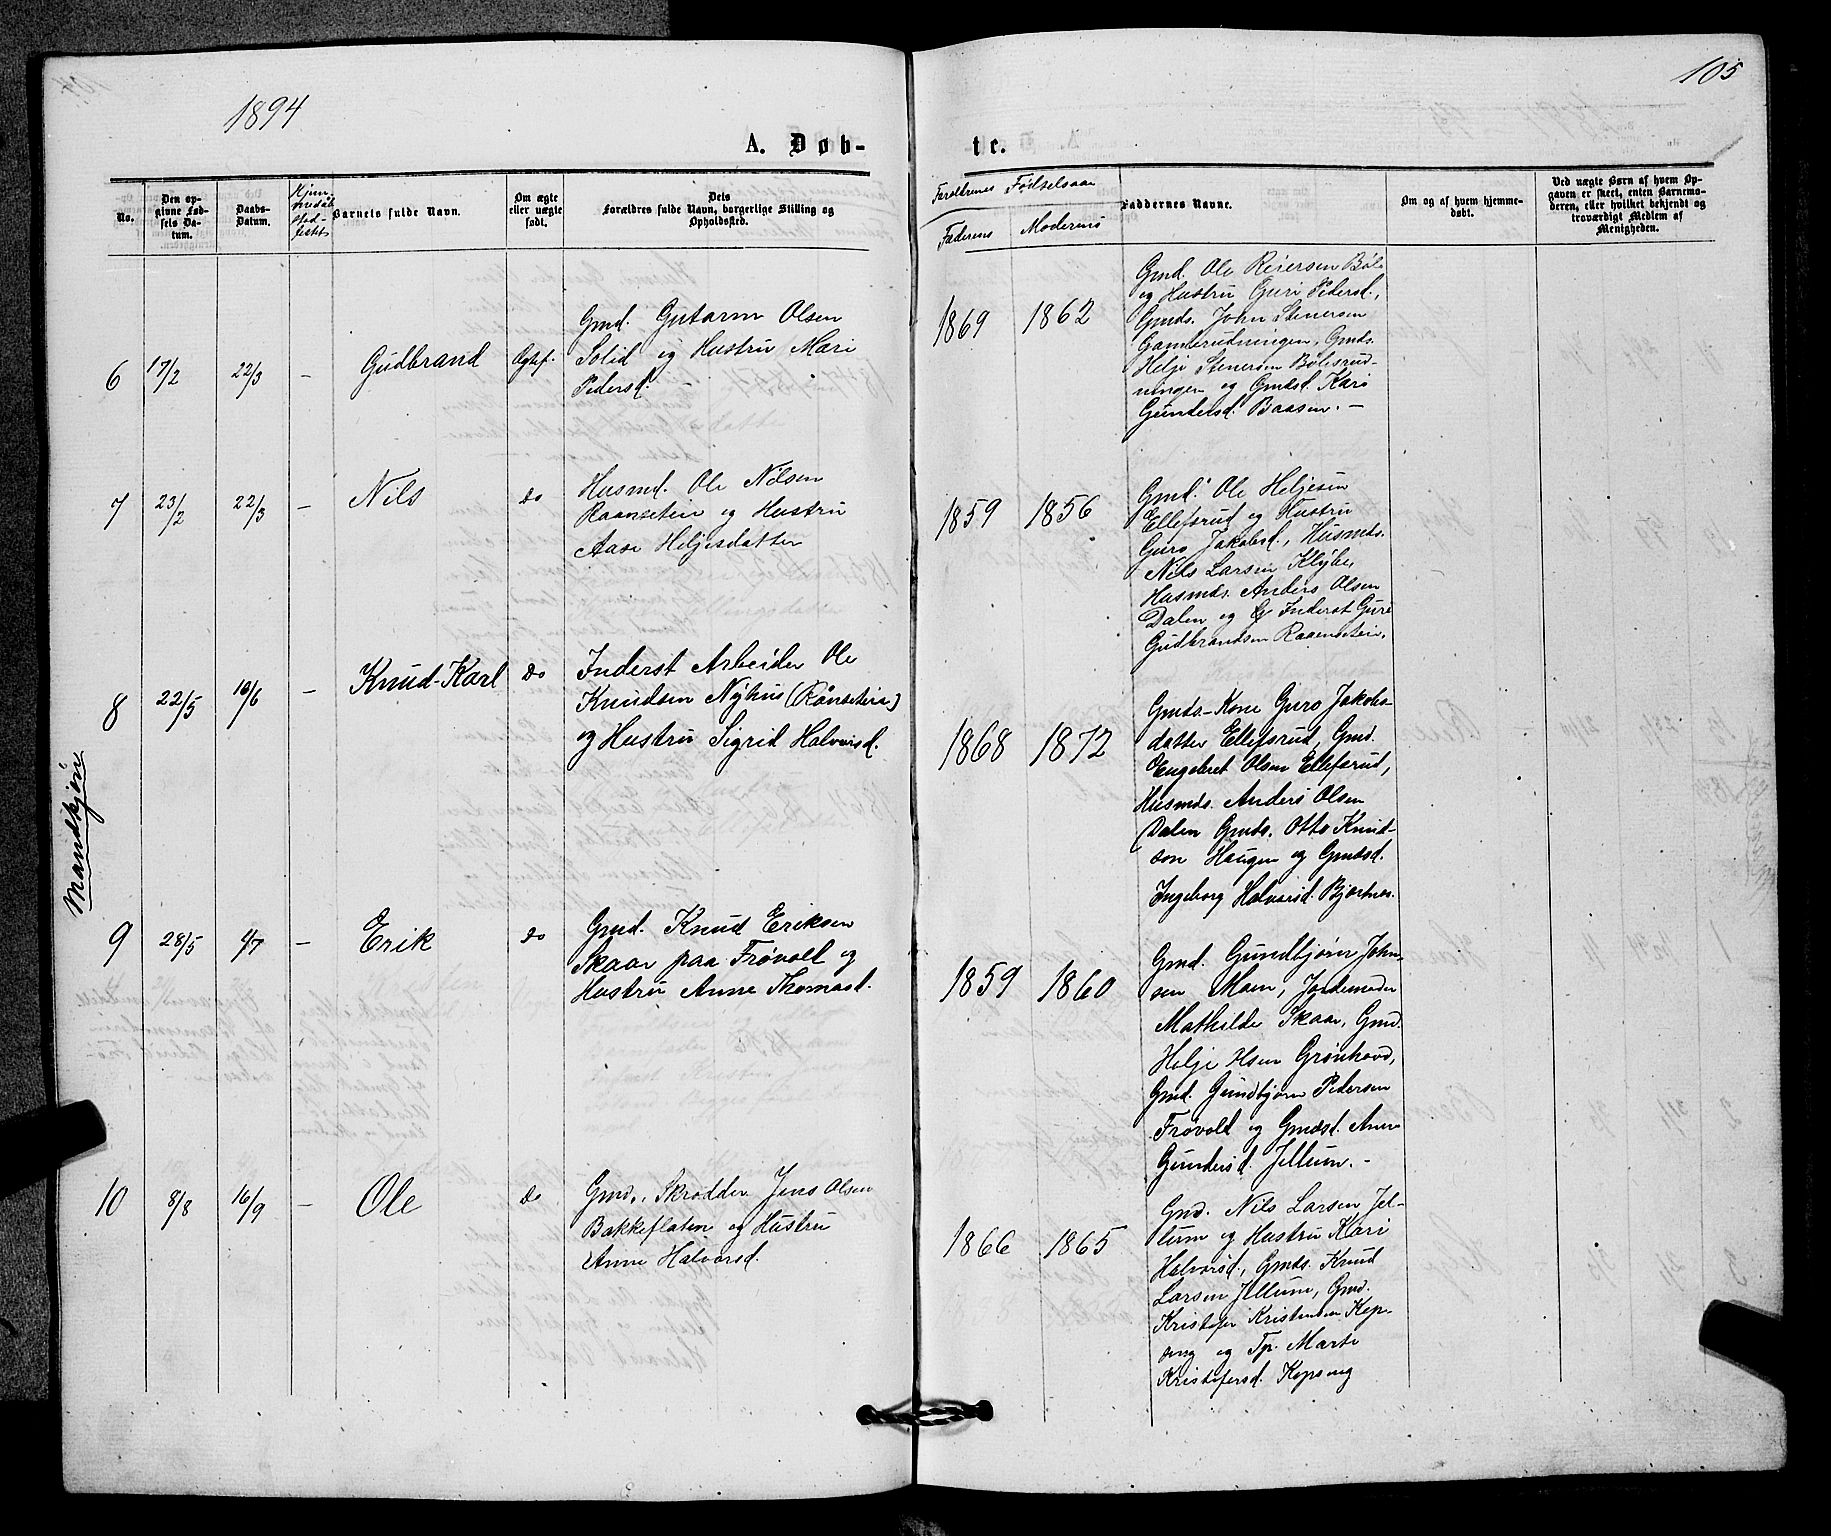 1894
105
A. Døb-
te.
No.
Den opgivne Fødsels Datum.
Daabs-Datum.
Barnets fulde Navn.
Om ægte eller uægte født.
Dets
Forældres fulde Navn, borgerlige Stilling og
Opholdssted.
Forældrenes Fødselsaar
Faderens
Moderens
Faddernes Navne.
Om og af hvem hjemmedøbt.
Ved uægte Børn af hvem Opgaven er skeet, enten Barnemoderen, eller hvilket bekjendt og troværdigt Medlem af Menigheden.
Mandkjøn
6 17/2 22/3 – Gudbrand Ægtef.
Gmd. Gutorm Olsen
Solid og Hustru Mari
Pedersd.
1869 1862
Gmd. Ole Reiersen
og Hustru Guri Pedersd.,
Gmds. John Stenersen
Gamerudningen, Gmds.
Helje Stenersen Bølisrud-
ningen og Gmdsd. Kari
Gundersd. Baasen. –
7 23/2 22/3 – Nils do
Husmd. Ole Nilsen
Raanseteien og Hustru
Aase Heljesdatter
1859 1856
Gmd. Ole Heljesen
Ellefsrud og Hustru
Guro Jakobsd., Husmds.
Nils Larsen
Husmds. Anders Olsen
Dalen og Inderst
Gudbrandsen
8 22/5 10/6 – Knud-Karl do
Inderst Arbeider Ole
Knudsen Nyhus (Rånseteie)
og Hustru Sigrid Halvorsd.
1868 1872
Gmds-Kone Guro Jakobs-
datter Ellefsrud, Gmd.
Engebret Olsen Ellefsrud,
Husmds. Anders Olsen
Dalen Gmds. Otto Knud-
son Haugen og Gmdsd.
Ingeborg Halvorsd. Bjørtnes.
9 28/5 4/7 – Erik do
Gmd. Knud Eriksen
Skaar paa Frøvoll og
Hustru Anne Thomasd.
1859 1860
Gmd. Gundbjørn John-
sen Moen, Jordemoder
Mathilde Skaar, Gmd.
Helje Olsen Grønhovd,
Gmd. Gundbjørn Pedersen
Frøvold og Gmdsd. Anne
Gundersd. Jellum. –
10 8/8 16/9 – Ole do
Gmd., Skrædder Jens Olsen
Bakkeflaten og Hustru
Anne Halvorsd.
1866 1865
Gmd. Nils Larsen Jel-
lum og Hustru Kari
Halvorsd., Gmds. Knud
Larsen Jellum, Gmd.
Kristofer Kristensen Kop-
seng og Tp. Marte
Kristofersd. Kopseng